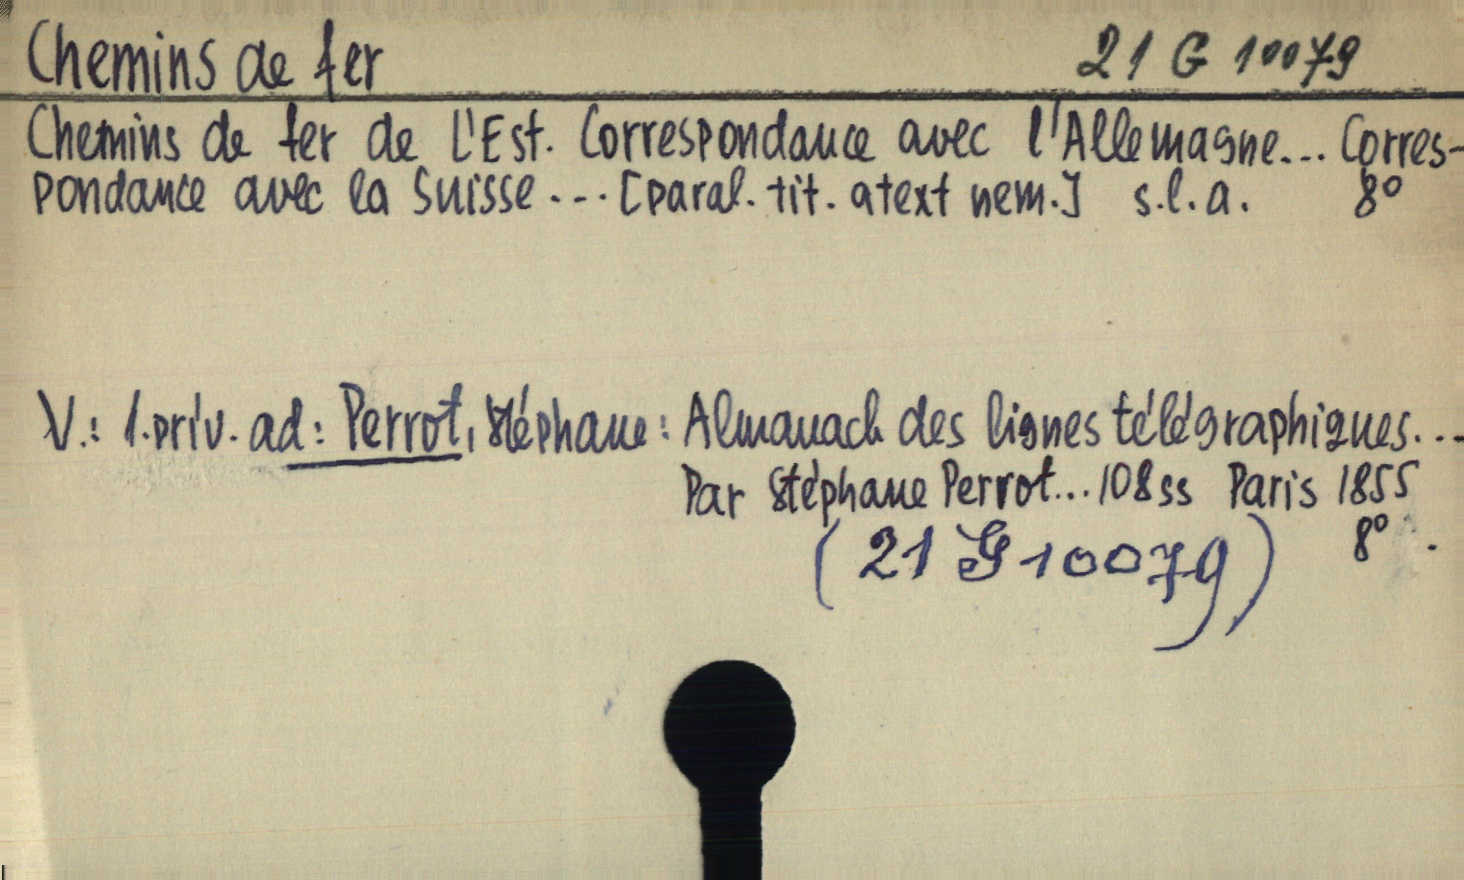 Chemins de fer 21 G 10079
Chemins de fer de L'Est. Correspondance avec l'Allemagne... Corres-
pondance avec la Suisse... [paral. tit. a text nem.] s.l.a. 8°
V.: 1. přív. ad: Perrot, Stéphane: Almanach des lignes télégraphiques...
Par Stéphane Perrot... 108 ss Paris 1855
8°.
(21 G 10079)